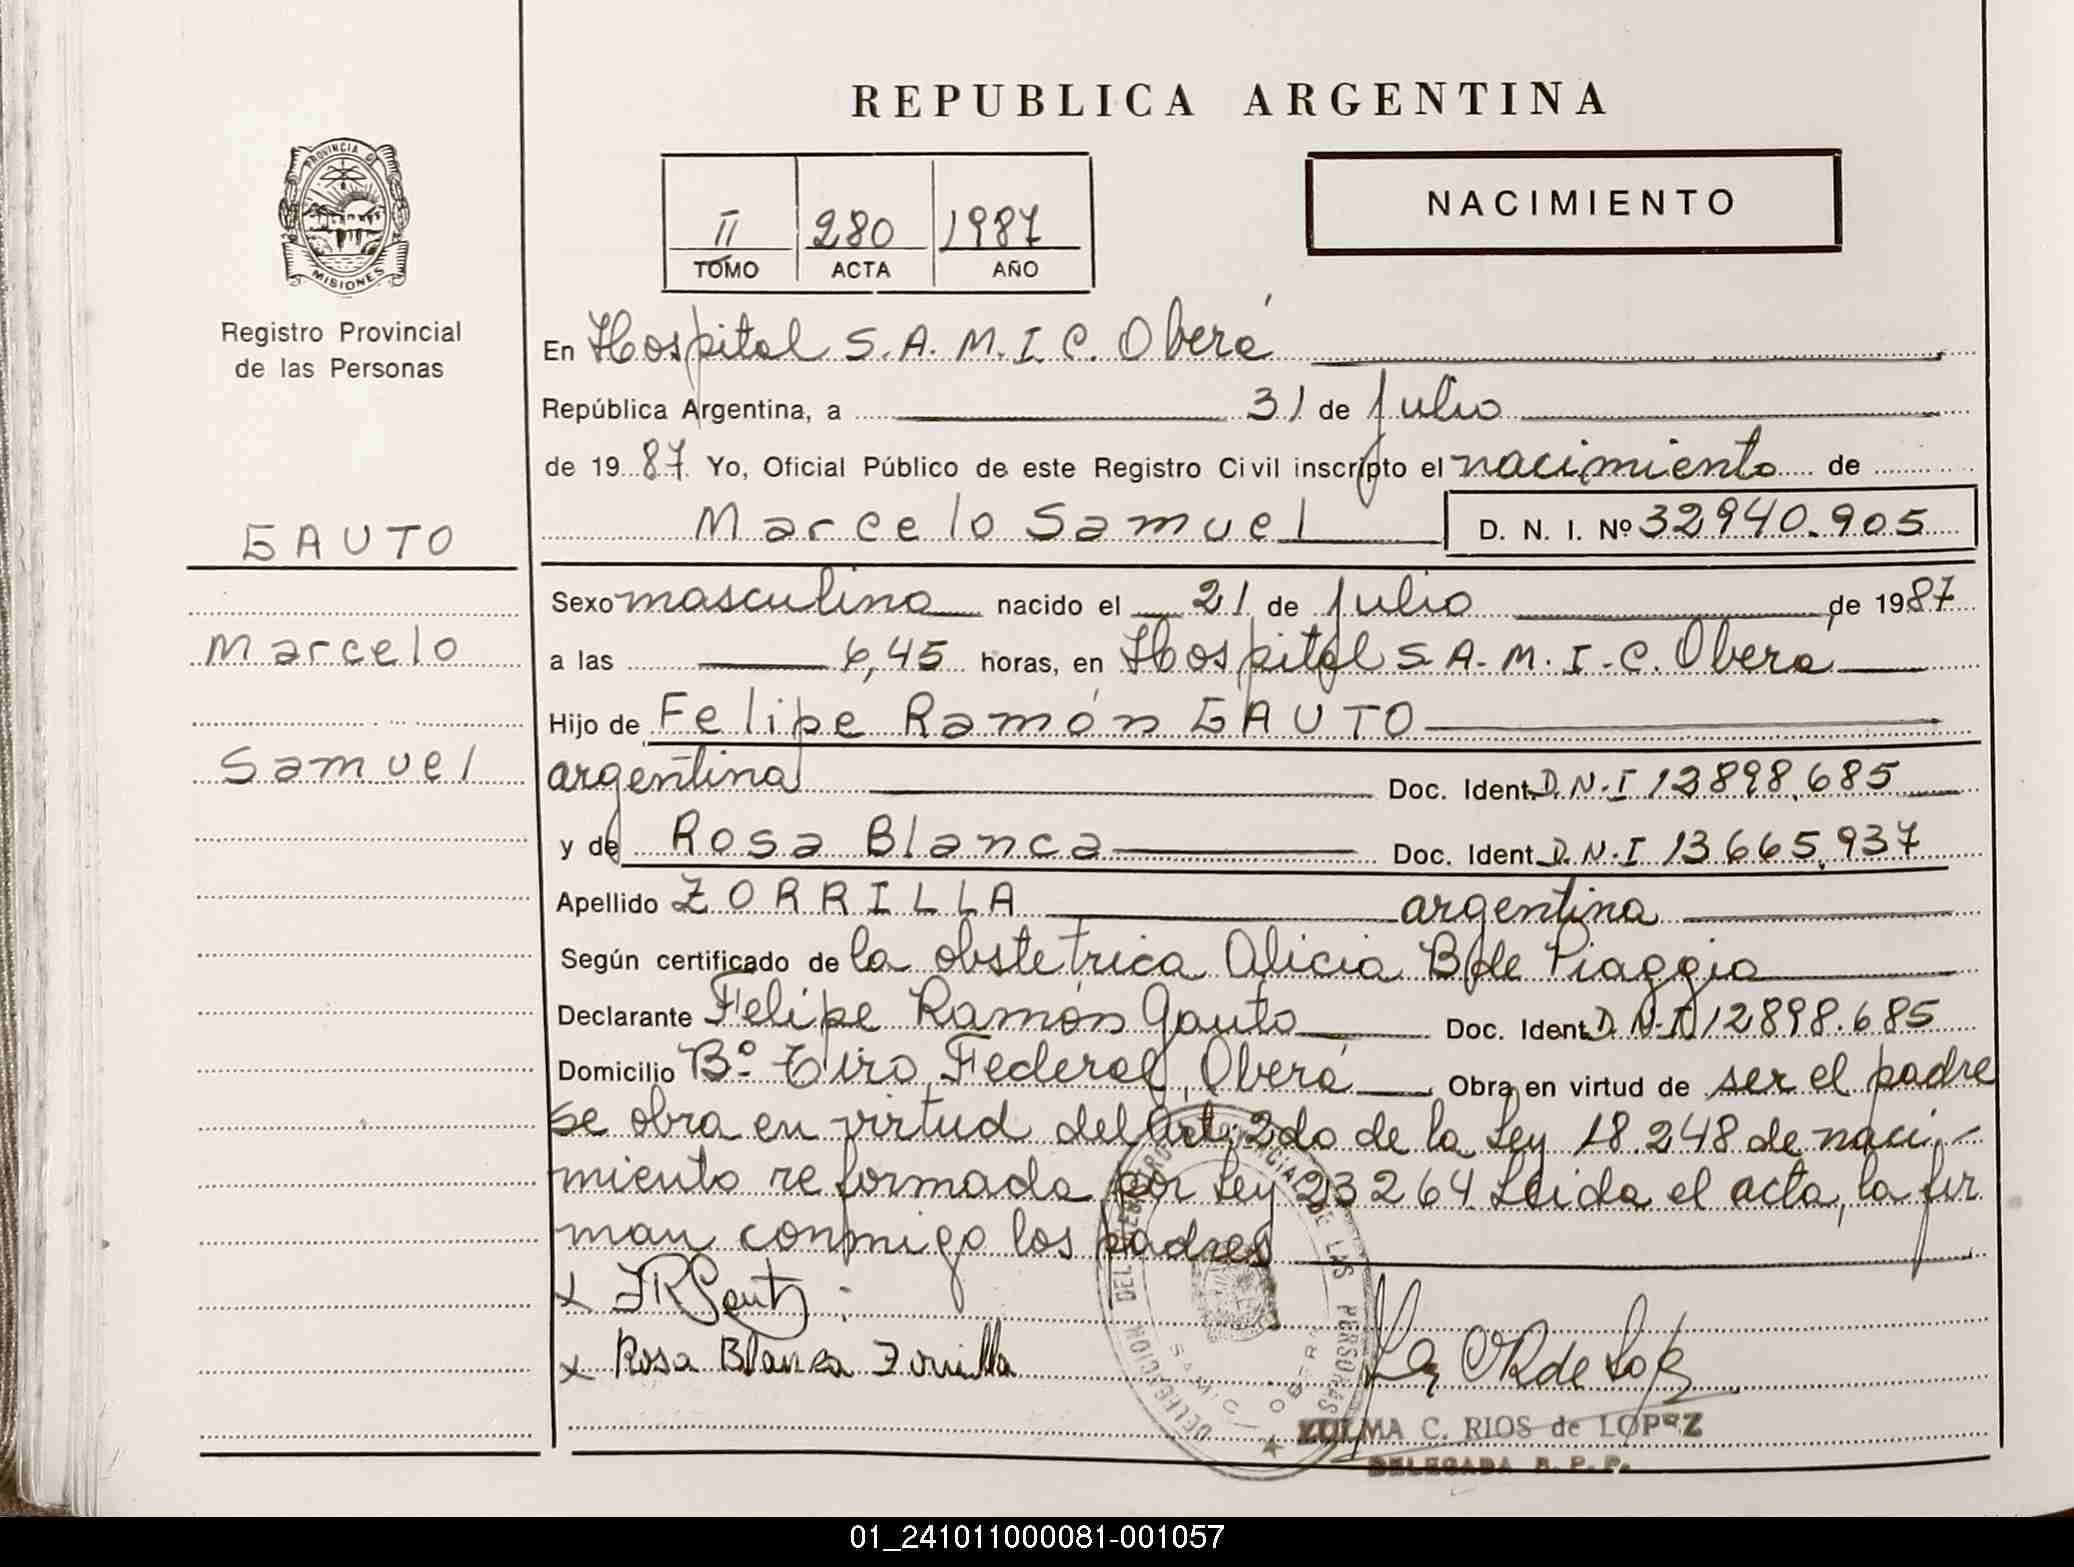 REPUBLICA ARGENTINA
PROVINCIA D
MISIONES
Registro Provincial
de las Personas
II 280 1987
TOMO ACTA AÑO
NACIMIENTO
En Hospital S.A.M.I.C. Oberá
República Argentina, a 31 de julio
de 1987 Yo, Oficial Público de este Registro Civil inscripto el nacimiento de
Marcelo Samuel D. N. I. Nº 32940.905
GAUTO
Marcelo
Samuel
Sexo masculino nacido el 21 de julio de 1987
a las 6,45 horas, en Hospital S A.M.I.C. Obera
Hijo de Felipe Ramón GAUTO
argentina Doc. Ident. D.N.I 12898.685
y de Rosa Blanca Doc. Ident. D.N.I 13665.937
Apellido ZORRILLA argentina
Según certificado de la obstetrica Alicia B de Piaggio
Declarante Felipe Ramón Gauto Doc. Ident. D.N.I 12898.685
Domicilio Bº Tiro Federal, Oberá Obra en virtud de ser el padre
se obra en virtud del Art. 2do de la Ley 18.248 de naci-
miento reformada por Ley 23264 Leida el acta, la fir
man conmigo los padres
x FRGauto
x Rosa Blanca Zorrilla
DELEGACION DEL REGISTRO PROVINCIAL DE LAS PERSONAS
SAMIC OBERA
ZULMA C. RIOS de LOPEZ
DELEGADA R.P.P.
01_241011000081-001057